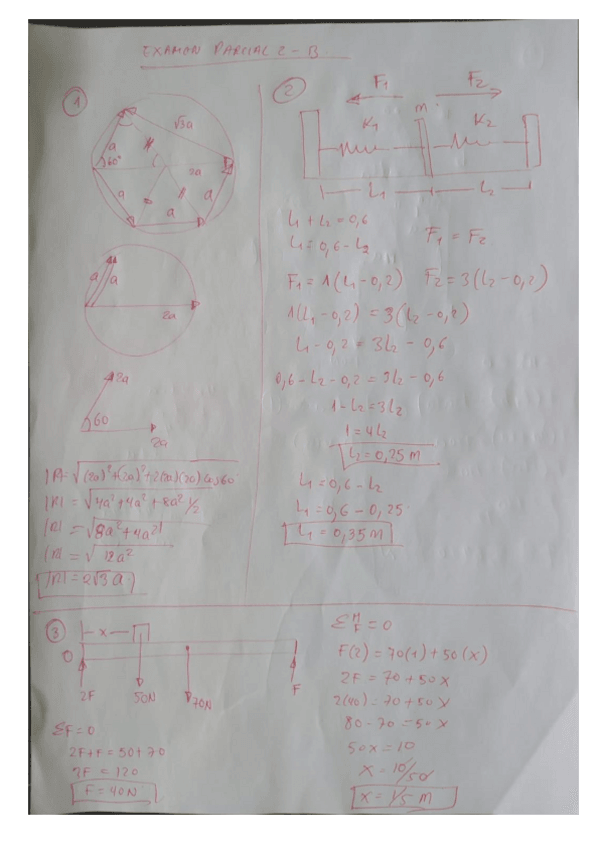 EXAMEN PARCIAL 2 - B
1
a
√3a
60°
2a
a
a
a
a
a
2a
2a
60
2a
|R| = √(2a)²+(2a)²+2(2a)(2a)cos60°
|R| = √4a²+4a²+8a² 1/2
|R| = √8a²+4a²
|R| = √12a²
|R| = 2√3 a
2
F₁ F₂
m
K₁ K₂
L₁ L₂
L₁ + L₂ = 0,6
L₁ = 0,6 - L₂
F₁ = F₂
F₁ = 1(L₁ - 0,2) F₂ = 3(L₂ - 0,2)
1(L₁ - 0,2) = 3(L₂ - 0,2)
L₁ - 0,2 = 3L₂ - 0,6
0,6 - L₂ - 0,2 = 3L₂ - 0,6
1 - L₂ = 3L₂
1 = 4L₂
L₂ = 0,25 m
L₁ = 0,6 - L₂
L₁ = 0,6 - 0,25
L₁ = 0,35 m
3
x
O
2F 50N 70N F
ΣF = 0
2F + F = 50 + 70
F = 40N
ΣM = 0
F(2) = 70(1) + 50(x)
2F = 70 + 50x
2(40) = 70 + 50x
80 - 70 = 50x
50x = 10
x = 10/50
x = 1/5 m